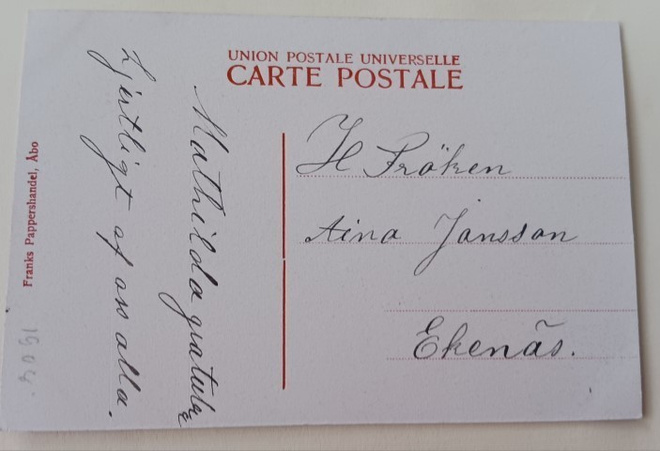 UNION POSTALE UNIVERSELLE
CARTE POSTALE
Mathilda gratulr
hjertligt af oss alla.
H Fröken
Aina Jansson
Ekenäs.
Franks Pappershandel, Åbo